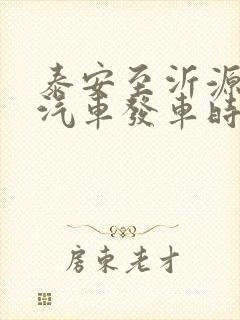 泰安至沂源
汽車發車時
房東老才